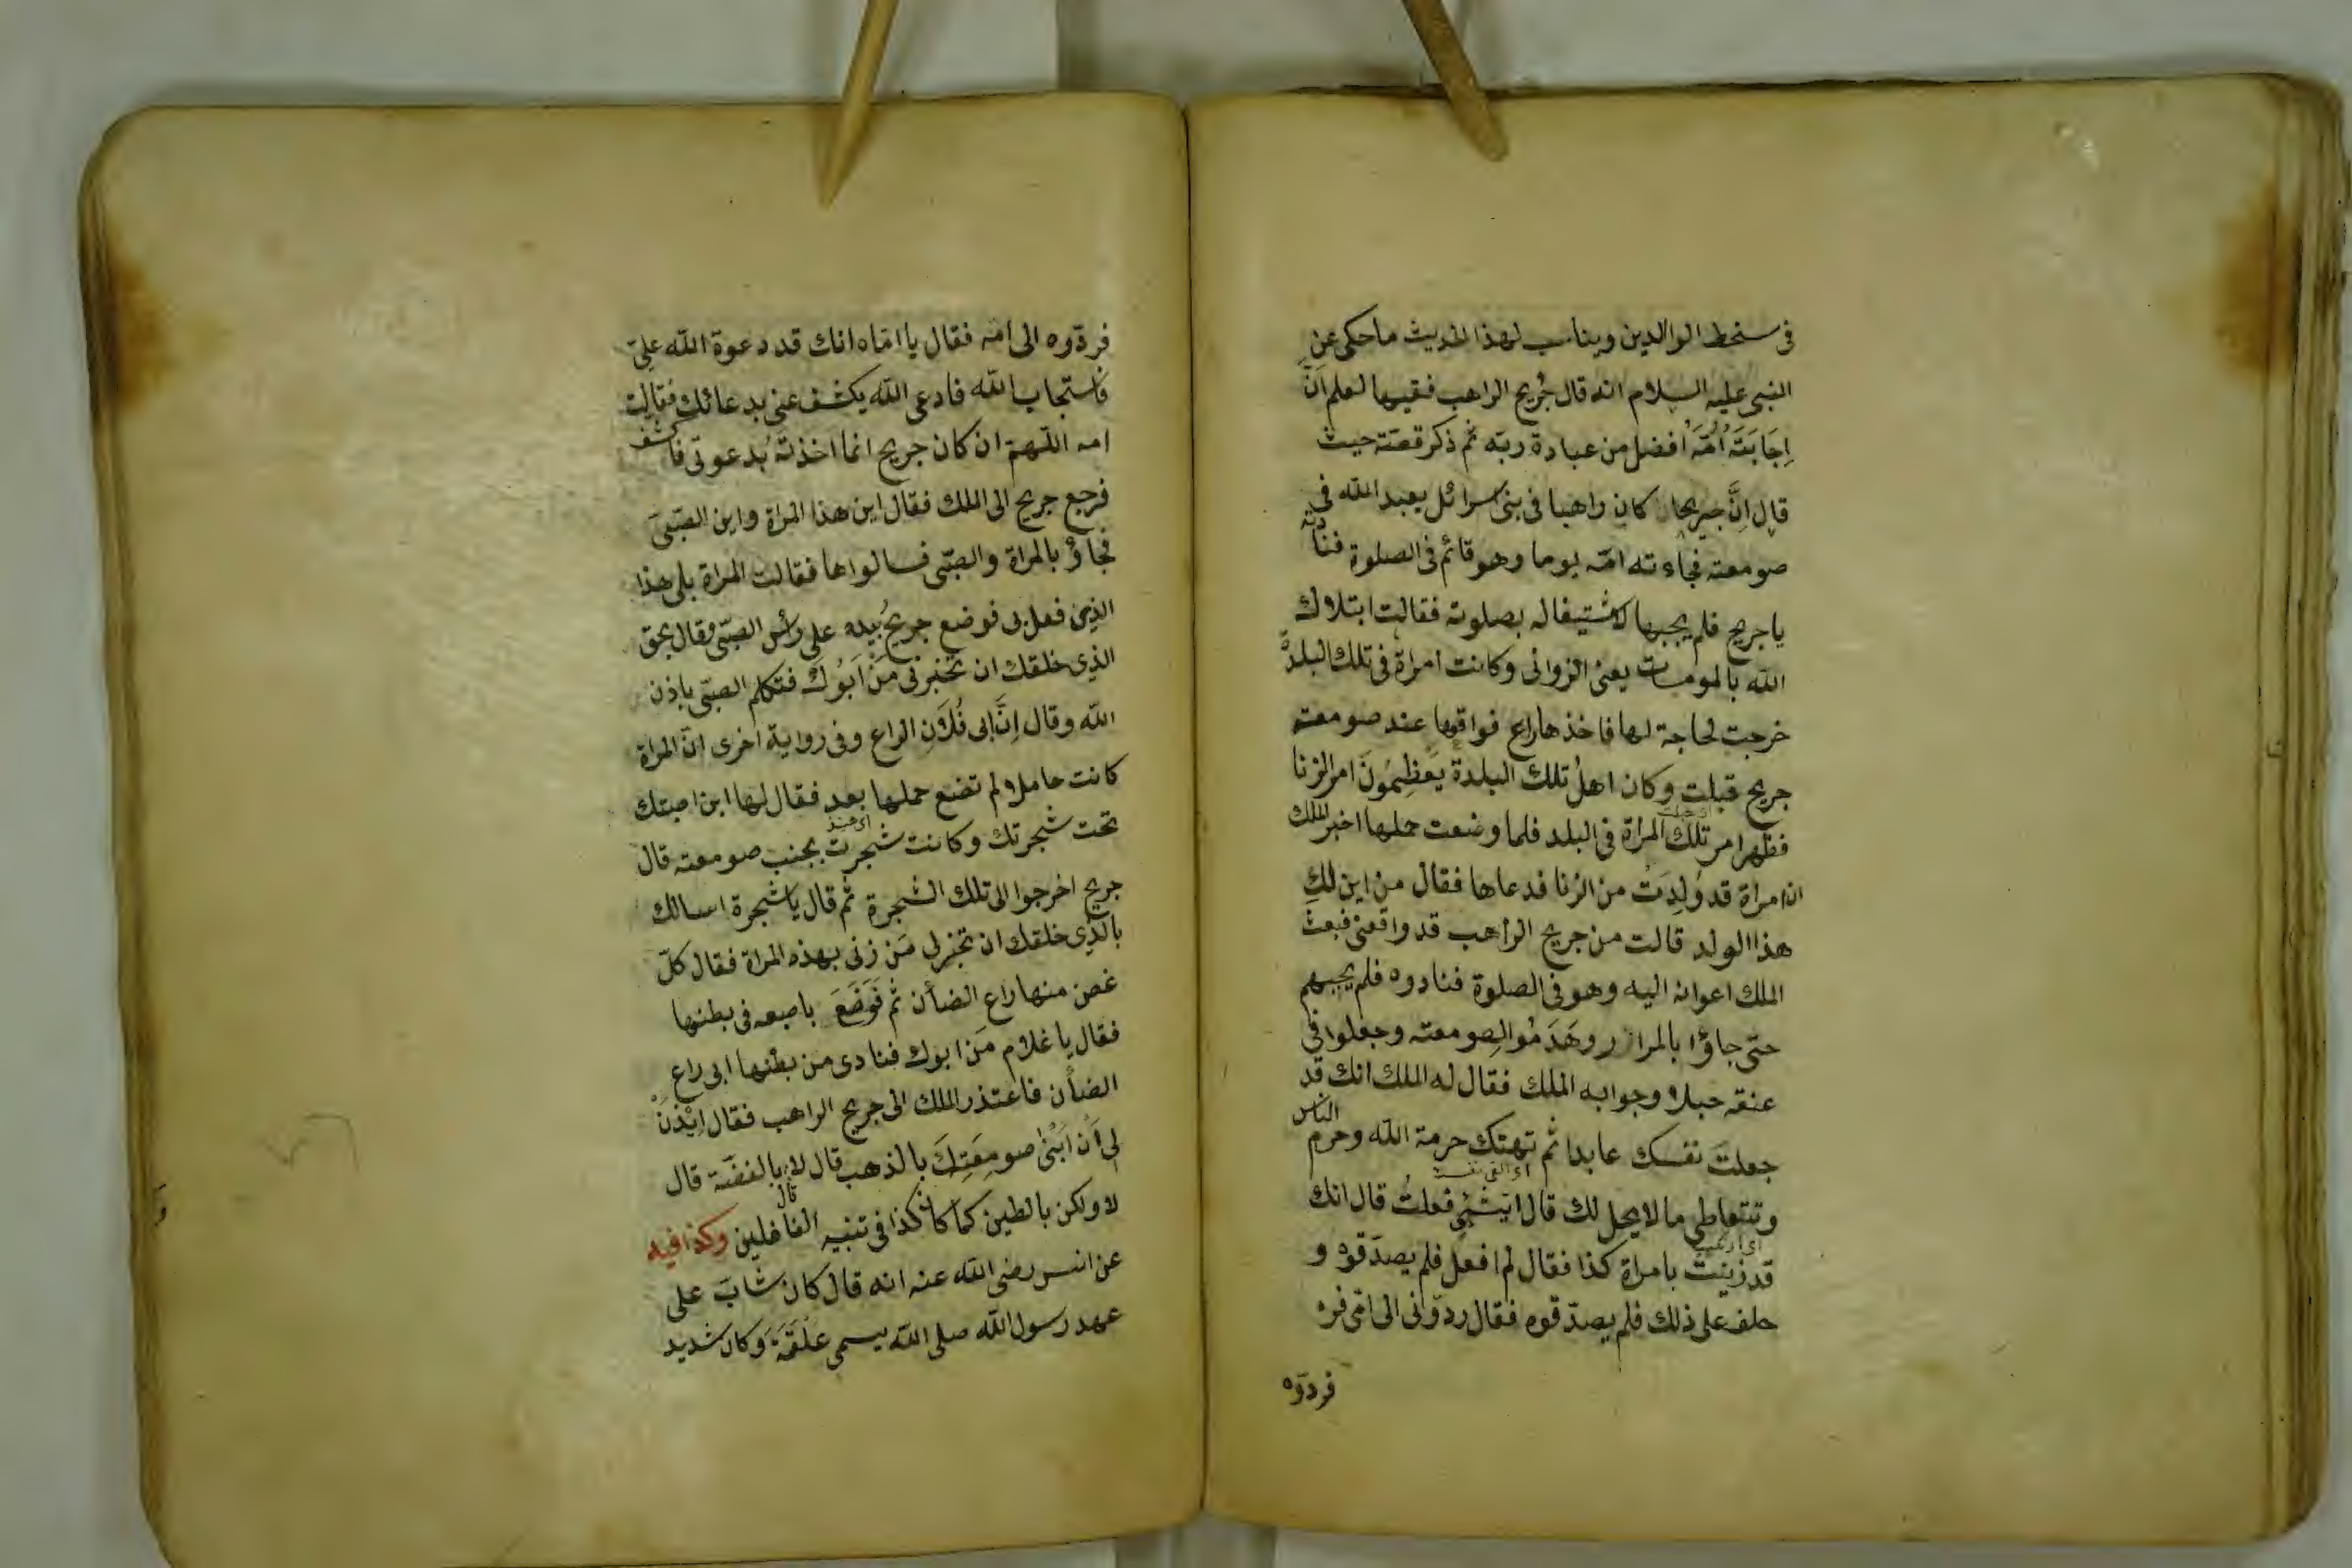 فى سخط الوالدين ويناسب لهذا الحديث ما حكى عن
النبى عليه السلام انه قال جُريج الراهب فقيها لعلم اَنَّ
اِجَابَتَهُ اُمَّهُ افضل من عبادة ربّه ثم ذكر قصّته حيث
قال اِنَّ جريجا كان راهبا فى بنى اسرائل يعبد الله فى
صومعته فجاءته امّه يوما وهو قائم فى الصلوة فنادته
يا جريج فلم يجبها لاشتيغاله بصلوته فقالت ابتلاك
الله بالمومسات يعنى الزوانى وكانت امراة فى تلك البلدة
خرجت لحاجة لها فاخذها راع فواقعها عند صومعته
جريج قبلت وكان اهلُ تلك البلدة يَعَظِّمُونَ امر الزنا
اى حبلت
فظهر امر تلك المراة فى البلد فلما وضعت حملها اخبر الملك
ان امراة قد وُلِدَتْ من الزنا فدعاها فقال من اين لكِ
هذا الولد قالت من جريج الراهب قد واقعنى فبعث
الملك اعوانه اليه وهو فى الصلوة فنادوه فلم يجبهم
حتى جاؤا بالمرازر وهَدَمُوا الصومعته وجعلوا فى
عنقه حبلا وجوابه الملك فقال له الملك انك قد
جعلتَ نفسك عابدا ثم تهتك حرمة الله وحرم الناس
وتتعاطى ما لا يحل لك قال ايشئٍ فعلتُ قال انك
قد زنيتَ بامراة كذا فقال لم افعل فلم يصدّقوه و
حلف على ذلك فلم يصدّقوه فقال ردّونى الى امّى فرد
فردّوه
فردّوه الى امّه فقال يا امّاه انك قد دعوة الله علىّ
فاستجاب الله فادعى الله يكشف عنى بدعائك فقالت
امه اللّهمّ ان كان جريج انما اخذته بُدعوتى فاكشف
فرجع جريج الى الملك فقال اين هذا المراة واين الصّبىَ
فجاؤ بالمراة والصّبى فسالواها فقالت المراة بلى هذا
الذى فعل بى فوضع جريجُ بيده على رأس الصبّى وقال بحق
الذى خلقك ان تخبرنى مَنْ اَبُوكَ فتكلم الصبّى باذن
الله وقال اِنَّ ابى فُلَانِ الراع وفى رواية اخرى انّ المراة
كانت حاملا لم تضع حملها بعد فقال لها اين اصبتك
تحت شجرتك وكانت شجرت بجنب صومعته قال
جريج اخرجوا الى تلك الشجرة ثم قال يا شجرة اسالك
بالذى خلقك ان تخبرلى مَن زنى بهذه المراة فقال كلّ
غصن منها راع الضأن ثم فَوَضَعَ باصبعه فى بطنها
فقال يا غلام مَن ابوك فنادى من بطنها ابى راع
الضأن فاعتذر الملك الى جريج الراهب فقال ايْذَنْ
لى اَن اَبْنى صومعَتِكَ بالذهب قال لا بالفضّة قال
لا ولكن بالطين كما كان كذا فى تنبيه الغافلين وكذا فيه
قال
عن انس رضى الله عنه انه قال كان شابّ على
عهد رسول الله صلى الله يسمى علقمَة وكان شديد